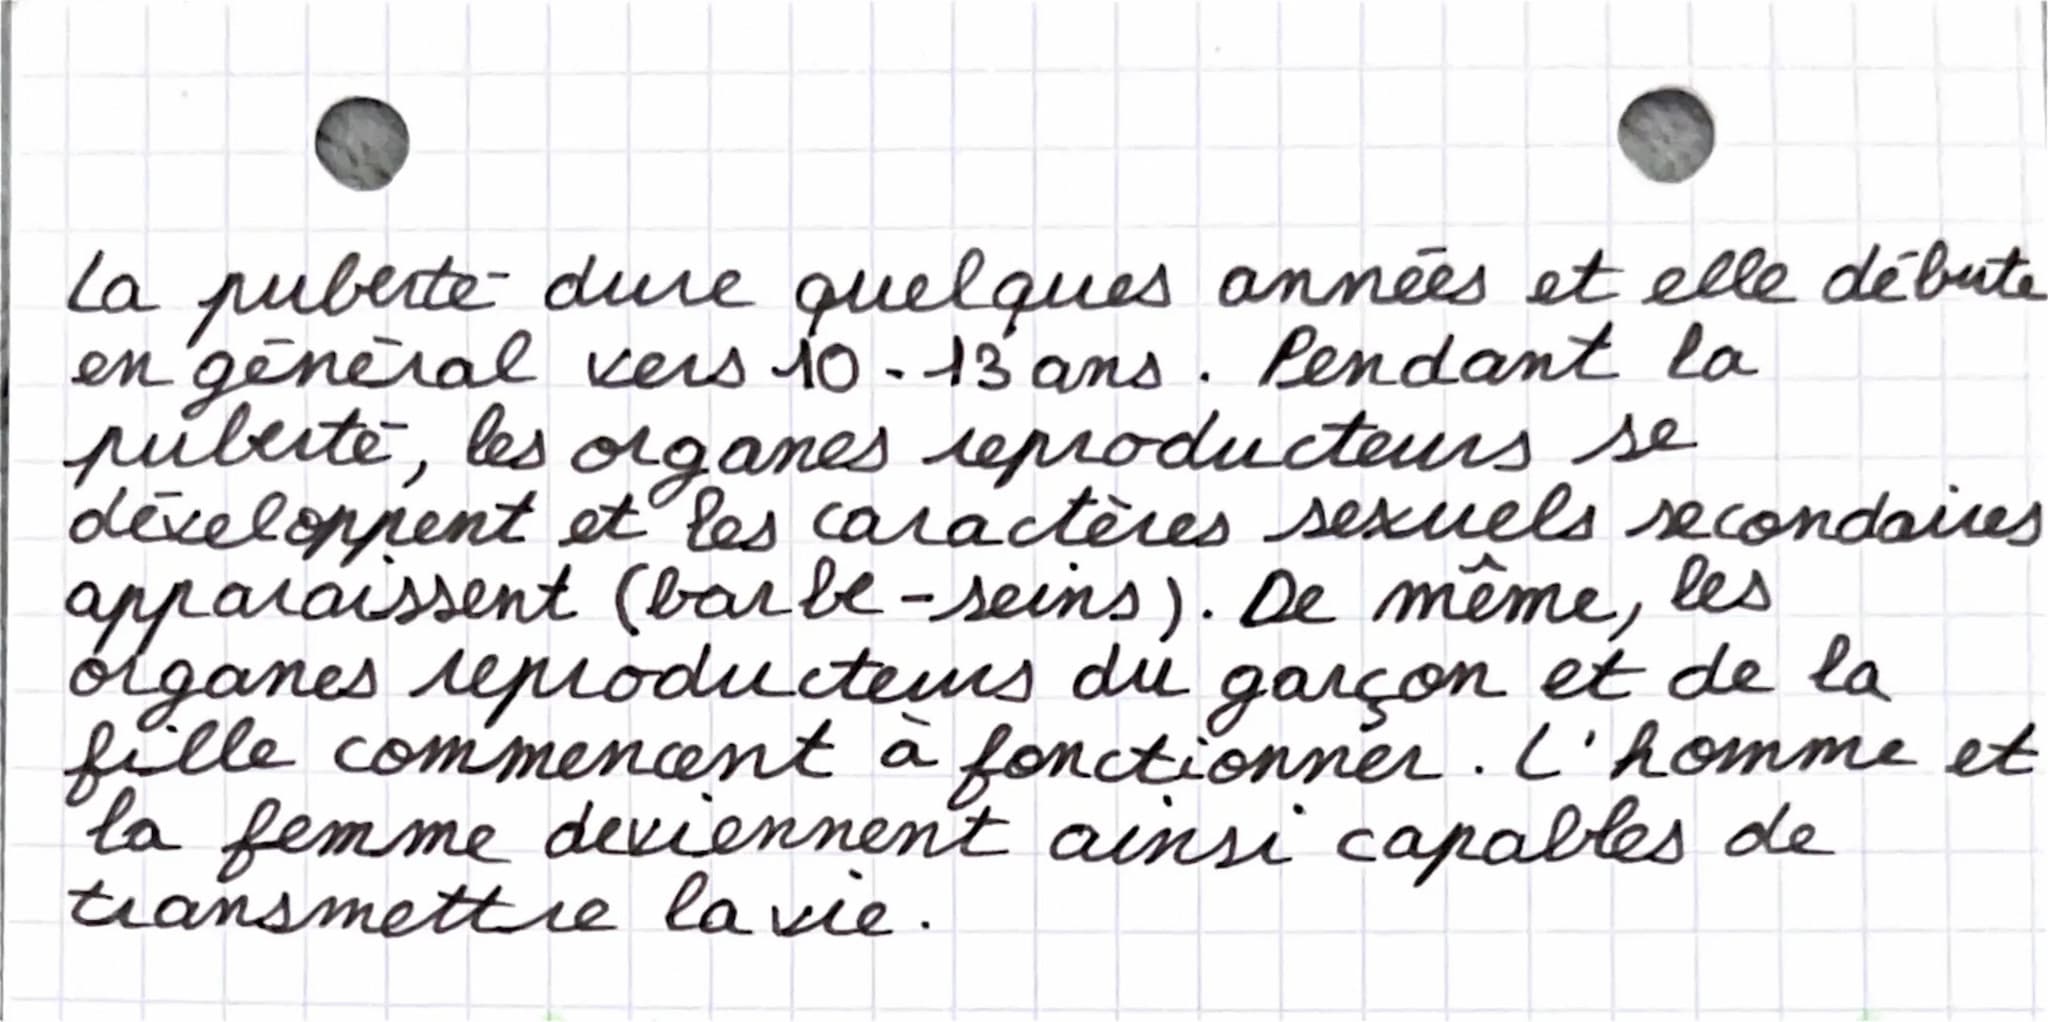 La puberté dure quelques années et elle débute
en général vers 10-13 ans. Pendant la
puberté, les organes reproducteurs se
développent et les caractères sexuels secondaires
apparaissent (barbe-seins). De même, les
organes reproducteurs du garçon et de la
fille commencent à fonctionner. L'homme et
la femme deviennent ainsi capables de
transmettre la vie.